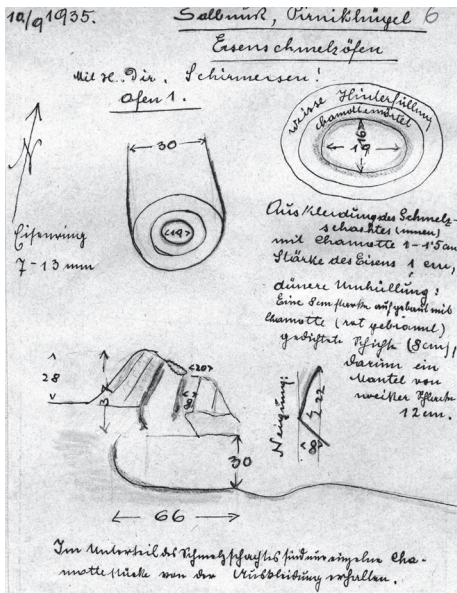 10/9 1935. Salbnuk, Pirnikhügel 6
Eisenschmelzöfen
Mit H. Dir. Schirmersen!
Ofen 1.
30
<19>
Eisenring
7-13 mm
weisse Hinterfüllung
chamottemörtel
16
19
Auskleidung des Schmelz-
schachtes (innen)
mit Chamotte 1-1·5 cm
Stärke des Eisens 1 cm,
dünere Umhüllung:
Eine 8cm starke aufgebaut mit
Chamotte (rot gebrannt)
gedichtete Schichte (8cm),
darum ein
Mantel von
weißer Schlacke
12 cm.
28
<20>
30
66
Neigung:
22
8
Im Unterteil des Schmelzschachtes sind nur einzelne Cha-
mottestücke von der Auskleidung erhalten.